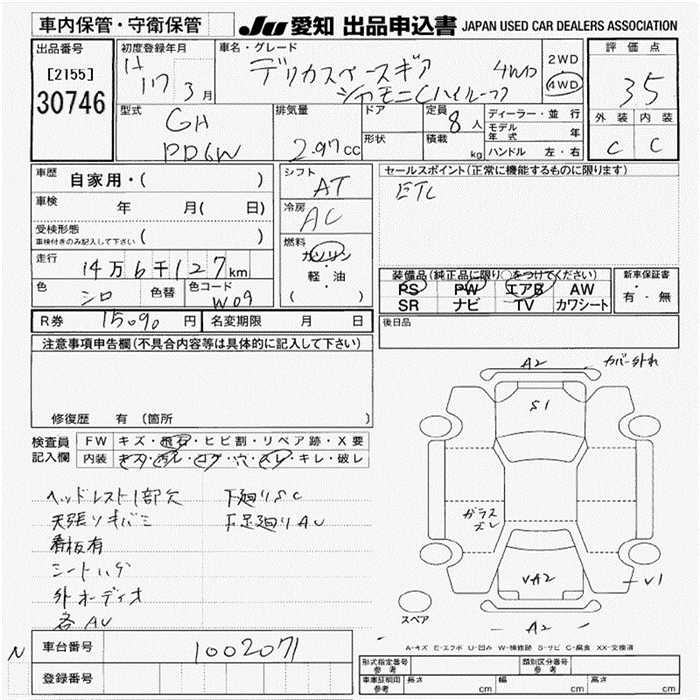 車内保管・守衛保管
JU 愛知 出品申込書 JAPAN USED CAR DEALERS ASSOCIATION
出品番号
[2155]
30746
初度登録年月
H 17 3 月
車名・グレード
デリカスペースギア 4WD
シャモニー(ハイルーフ)
2WD
4WD
評価点
3.5
外装 内装
C C
型式
GH
PD6W
排気量
2.97 cc
ドア
形状
定員
8 人
積載
kg
ディーラー・並行
モデル年式 年
ハンドル 左・右
車歴
自家用・( )
車検
年 月( 日)
受検形態
車検付きのみ記入して下さい ( )
走行
14万6千127km
色
シロ
色替
色コード
W09
シフト
AT
冷房
AC
燃料
ガソリン
・
軽・油
( )
セールスポイント(正常に機能するものに限ります)
ETC
装備品(純正品に限り○をつけてください)
PS PW エアB AW
SR ナビ TV カワシート
新車保証書
有・無
R券 15090 円
名変期限 月 日
後日品
注意事項申告欄(不具合内容等は具体的に記入して下さい)
修復歴 有 (箇所 )
検査員
記入欄
FW キズ・飛石・ヒビ割・リペア跡・X要
内装 キズ・汚レ・コゲ・穴・スレ・キレ・破レ
ヘッドレスト1部欠 下廻りSC
天張リキバミ 下足廻りAU
看板有
シートハゲ
外オーディオ
各AU
A2 カバー外れ
S1
ガラス
ズレ
VA2
V1
A2
スペア
A-キズ E-エクボ U-凹み W-補修跡 S-サビ C-腐食 XX-交換済
N
車台番号 1002071
登録番号
形式指定番号
参考
類別区分番号
参考
車庫証明用
参考
長さ cm 幅 cm 高さ cm